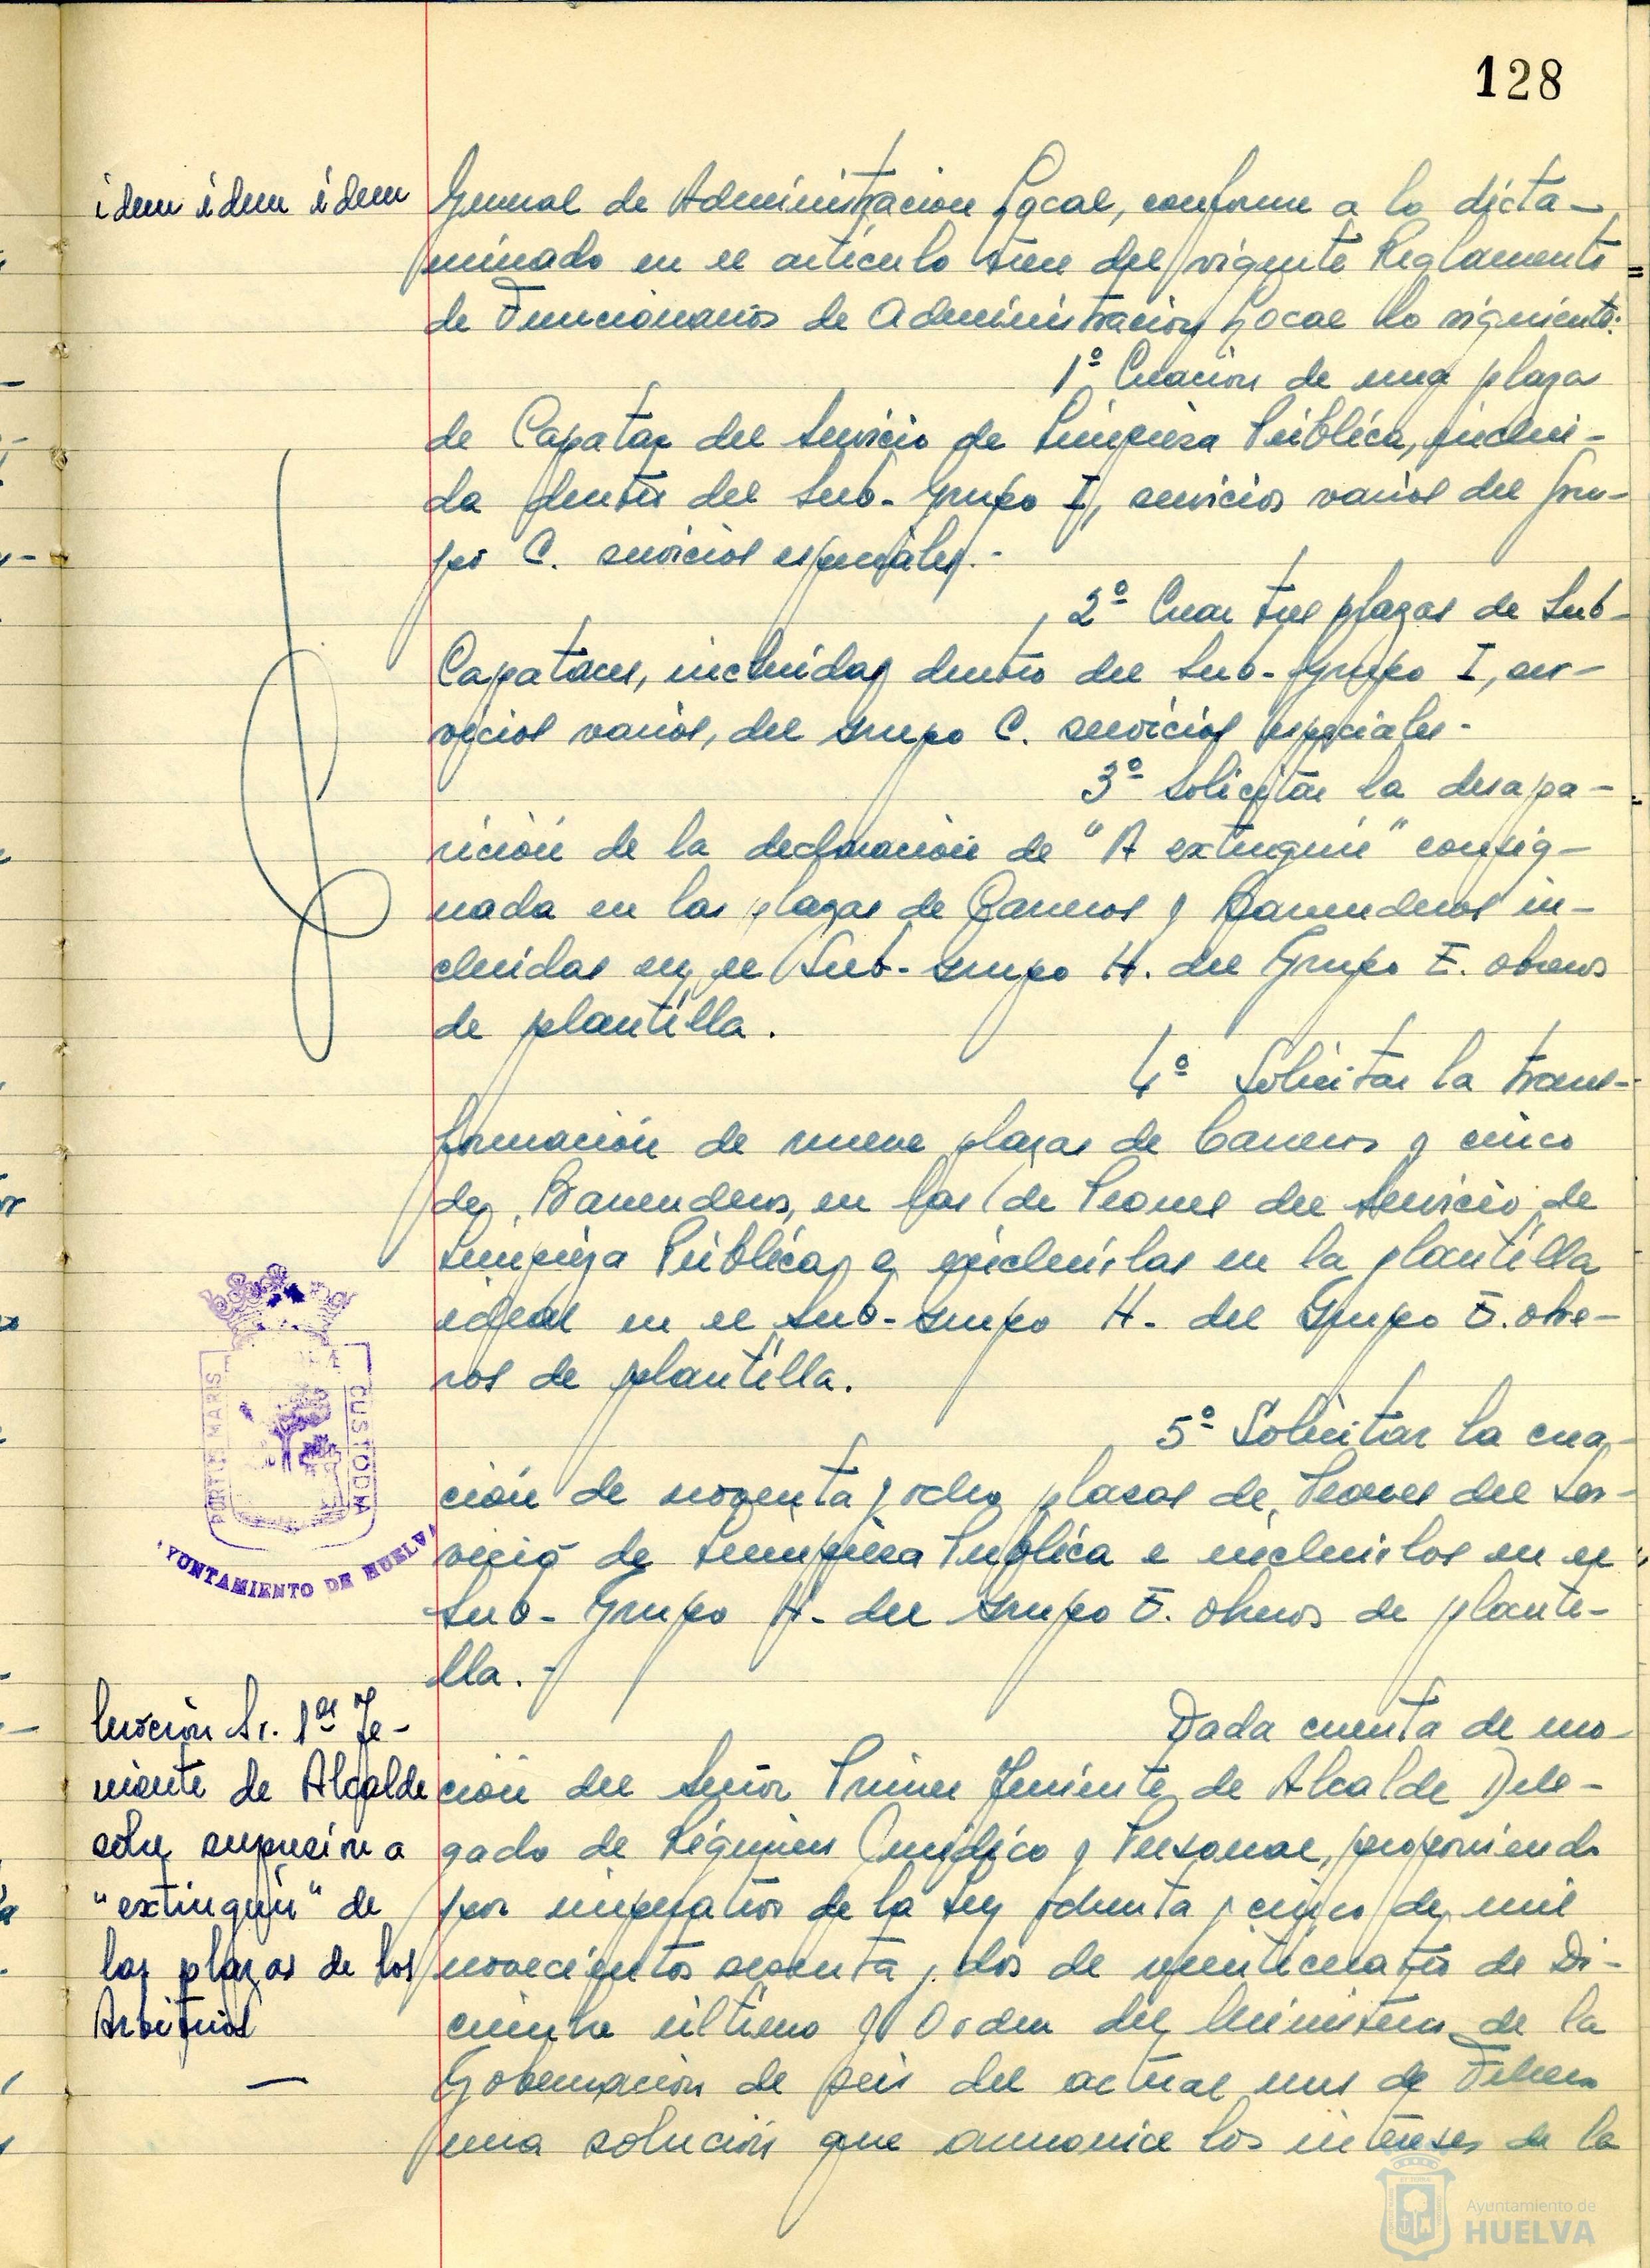 128
idem idem idem
General de Administracion Local, conforme a lo dicta-
minado en el articulo trece del vigente Reglamento
de Funcionarios de Administracion Local lo siguiente:
1º Creación de una plaza
de Capataz del Servicio de Limpieza Pública, inclui-
da dentro del Sub-Grupo I, servicios varios del Gru-
po C. servicios especiales.-
2º Crear tres plazas de Sub-
Capataces, incluidas dentro del Sub-Grupo I, ser-
vicios varios, del Grupo C. servicios especiales-
3º Solicitar la desapa-
rición de la declaración de "A extinguir" consig-
nada en las plazas de Carreros y Barrenderos in-
cluidas en el Sub-Grupo H. del Grupo E. obreros
de plantilla.
4º Solicitar la trans-
formación de nueve plazas de Carreros y cinco
de Barrenderos, en las de Peones del Servicio de
Limpieza Pública y a incluirlas en la plantilla
ideal en el Sub-Grupo H- del Grupo E. obre-
ros de plantilla.
5º Solicitar la crea-
ción de noventa y ocho plazas de Peones del Ser-
vicio de Limpieza Publica e incluirlos en el
Sub-Grupo H- del Grupo E. Obreros de planti-
lla.-
PORTUS MARIS
CUSTODIA
AYUNTAMIENTO DE HUELVA
Moción Sr. 1er Te-
niente de Alcalde
sobre supresión a
"extinguir" de
las plazas de los
Arbitrios
Dada cuenta de mo-
ción del Señor Primer Teniente de Alcalde Dele-
gado de Régimen Jurídico y Personal, proponiendo
por imperativo de la Ley ochenta y cinco de mil
novecientos sesenta y dos de veinticuatro de Di-
ciembre último y Orden del Ministerio de la
Gobernación de seis del actual mes de Febrero
una solución que armonice los intereses de la
Ayuntamiento de
HUELVA